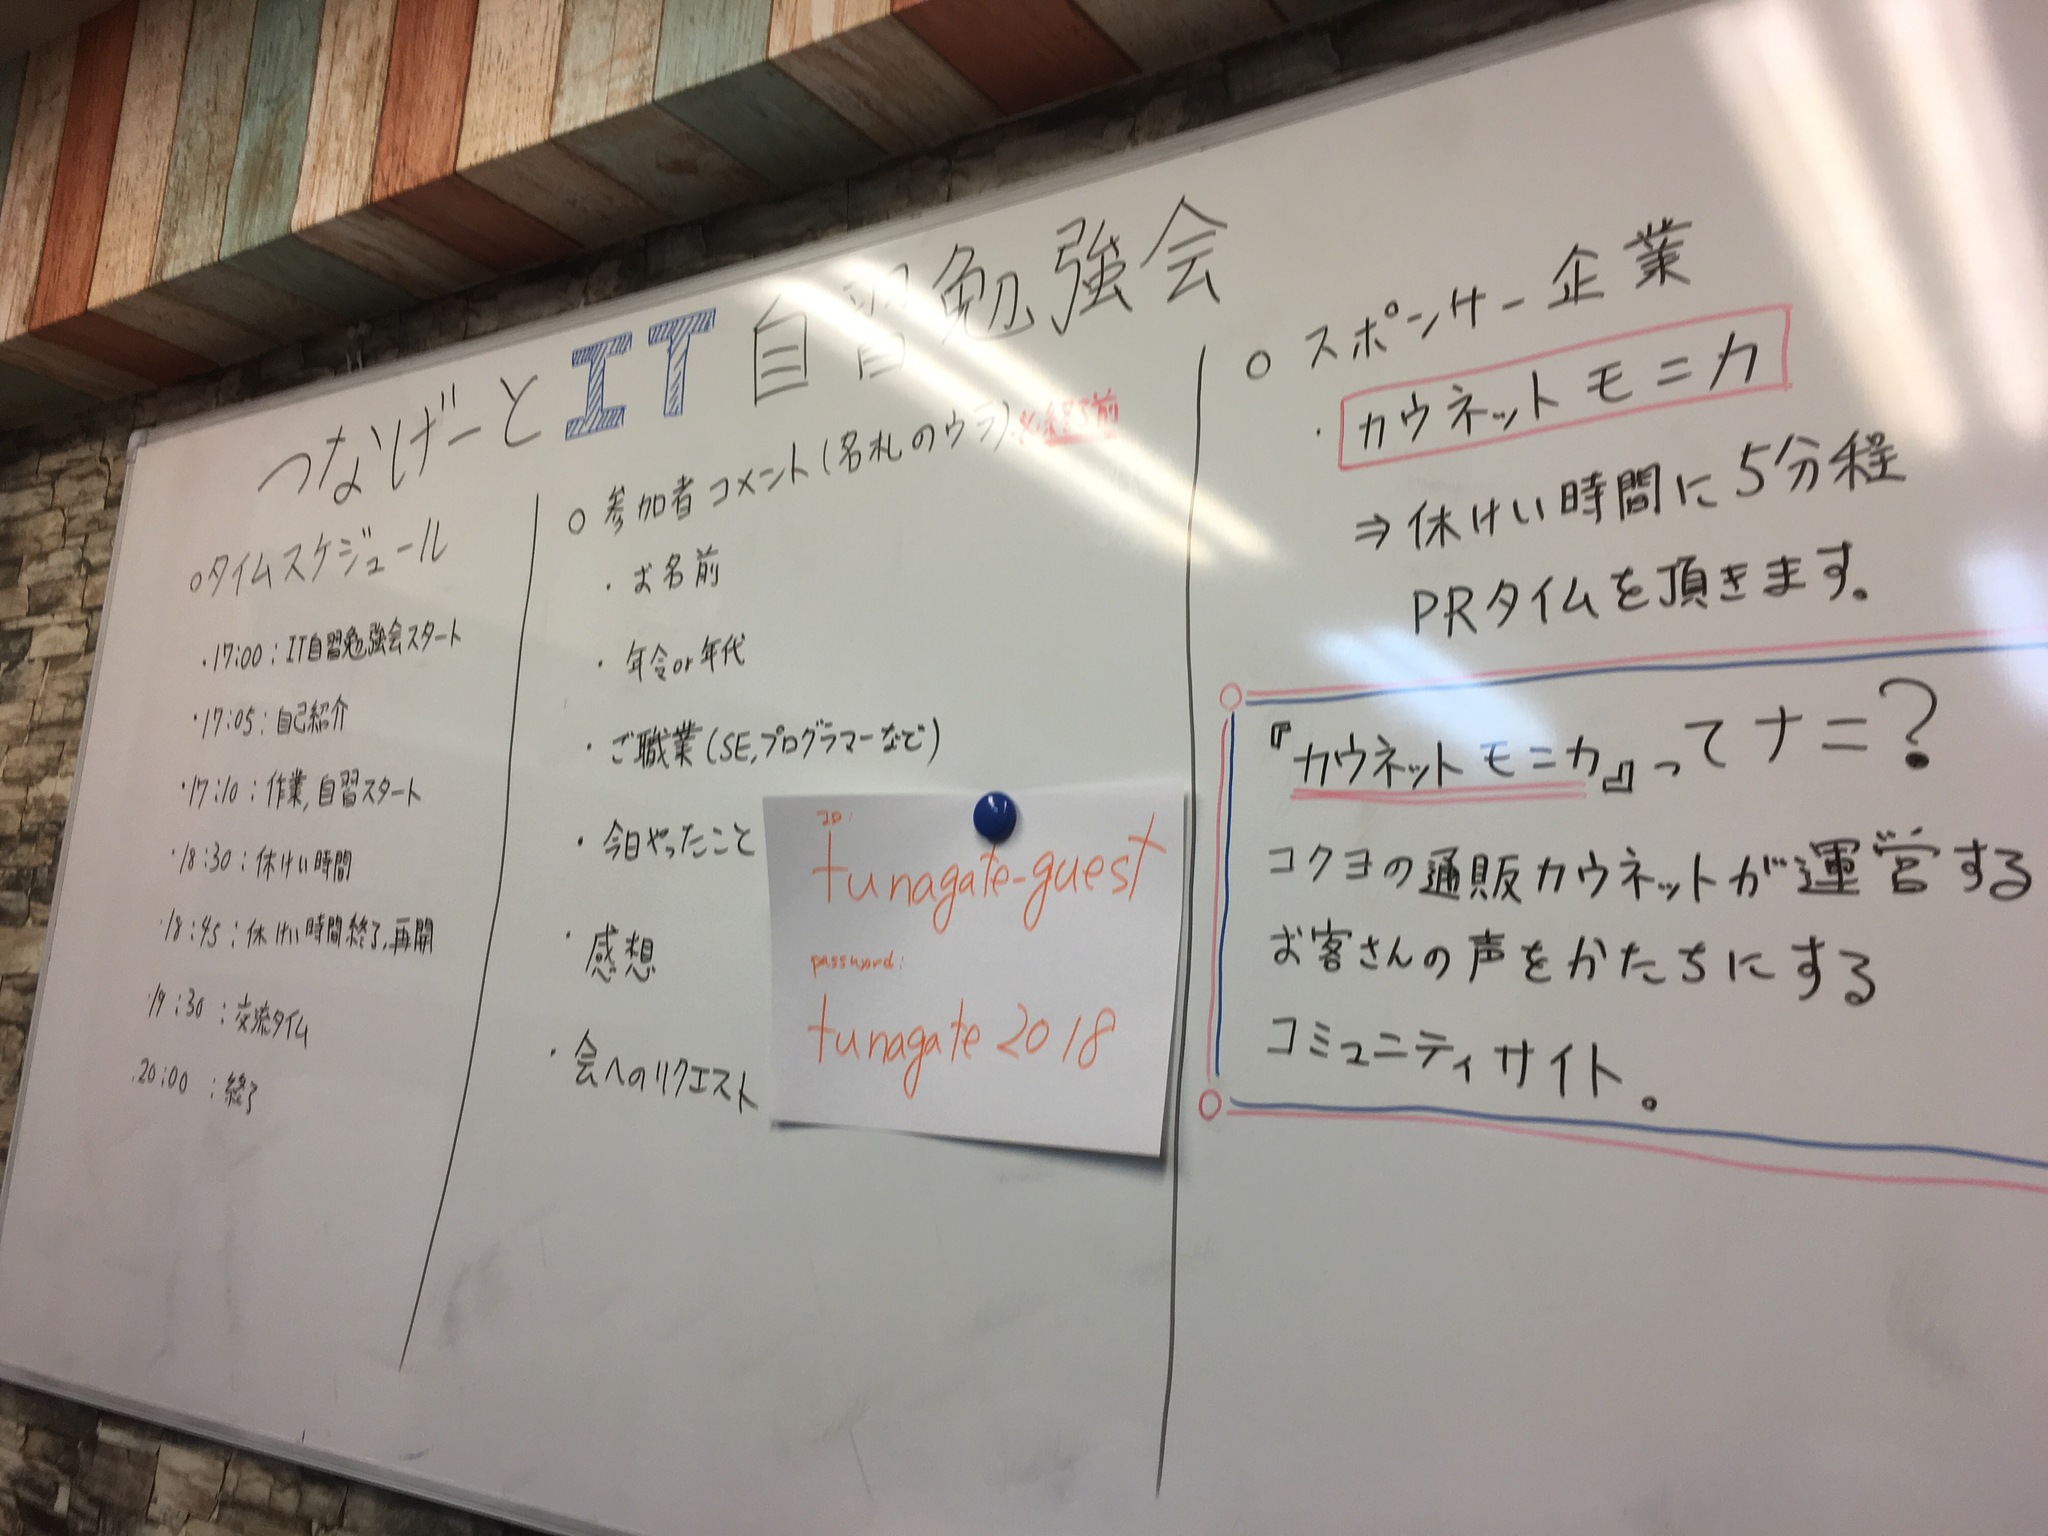 つなげーと IT 自習勉強会
○タイムスケジュール
・17:00:IT自習勉強会スタート
・17:05:自己紹介
・17:10:作業,自習スタート
・18:30:休けい時間
・18:45:休けい時間終了,再開
・19:30:交流タイム
・20:00:終了
○参加者コメント(名札のウラ)※終了前
・お名前
・年令or年代
・ご職業(SE,プログラマーなど)
・今日やったこと
・感想
・会へのリクエスト
ID:
tunagate-guest
password:
tunagate2018
○スポンサー企業
・カウネットモニカ
⇒休けい時間に5分程
PRタイムを頂きます。
『カウネットモニカ』ってナニ?
コクヨの通販カウネットが運営する
お客さんの声をかたちにする
コミュニティサイト。